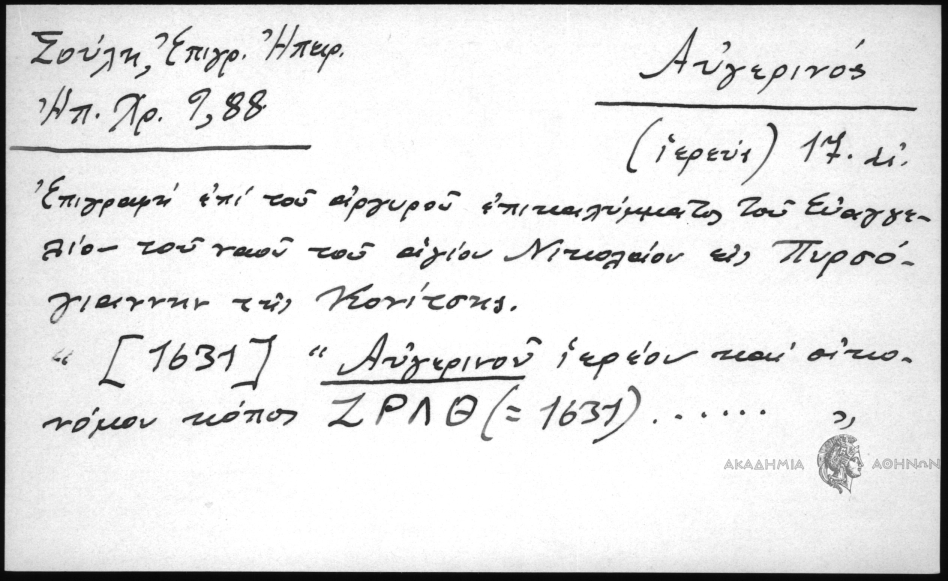 Σούλη, Ἐπιγρ. Ἠπειρ.
Ἠπ. Χρ. 9,88
Αὐγερινός
(ἱερεύς) 17. αἰ.
Ἐπιγραφή ἐπί τοῦ ἀργυροῦ ἐπικαλύμματος τοῦ Εὐαγγε-
λίο- τοῦ ναοῦ τοῦ ἁγίου Νικολάου εἰς Πυρσό-
γιαννην τῆς Κονίτσης.
“ [1631] “ Αὐγερινοῦ ἱερέου καί οἰκο-
νόμου κόπος ΖΡΛΘ (= 1631) ...... ”
ΑΚΑΔΗΜΙΑ ΑΘΗΝΩΝ